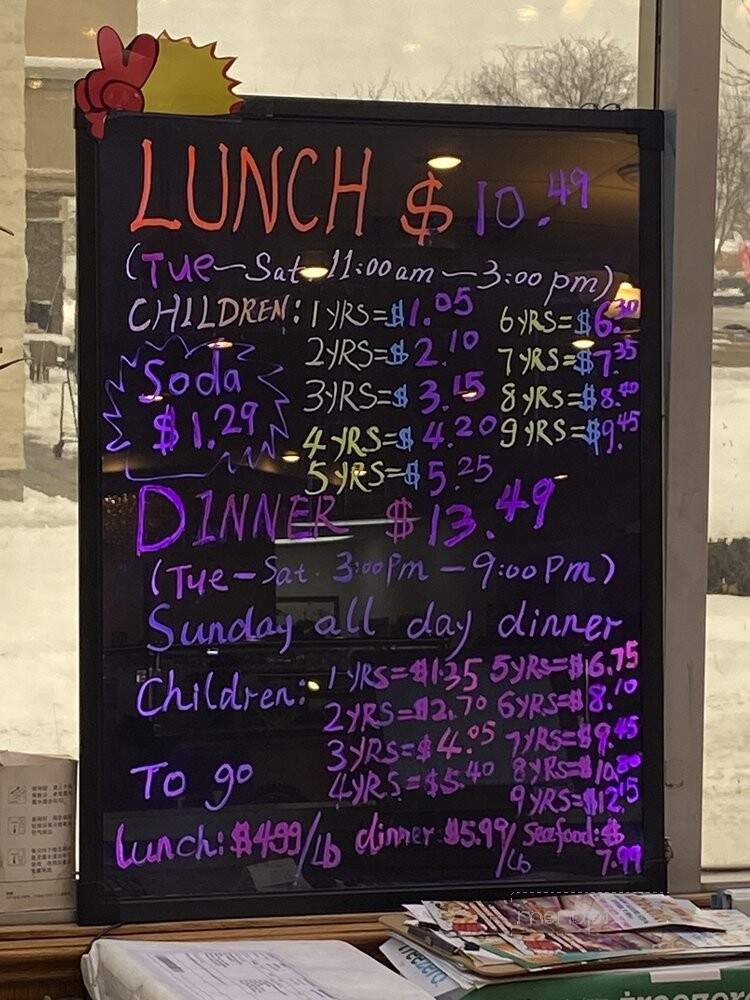 LUNCH $10.49
(Tue - Sat 11:00am - 3:00pm)
CHILDREN: 1YRS=$1.05 6YRS=$6.30
2YRS=$2.10 7YRS=$7.35
3YRS=$3.15 8YRS=$8.40
4YRS=$4.20 9YRS=$9.45
5YRS=$5.25
Soda
$1.29
DINNER $13.49
(Tue - Sat 3:00Pm - 9:00Pm)
Sunday all day dinner
Children: 1YRS=$1.35 5YRS=$6.75
2YRS=$2.70 6YRS=$8.10
3YRS=$4.05 7YRS=$9.45
4YRS=$5.40 8YRS=$10.80
9YRS=$12.15
To go
lunch: $4.99/Lb dinner $5.99/Lb Seafood: $7.99
menupix
freezero